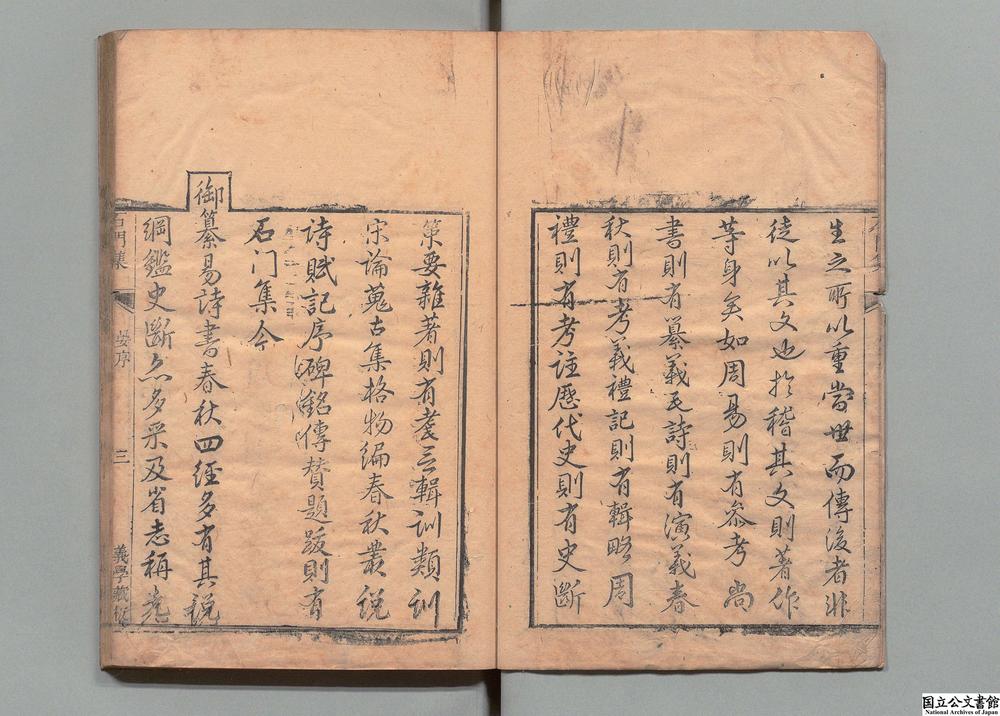 生之所以重當世而傳後者非
徒以其文也於稽其文則著作
等身矣如周易則有叅考尚
書則有纂義毛詩則有演義春
秋則有考義禮記則有輯略周
禮則有考註歷代史則有史斷
策要雜著則有耄言輯訓類訓
宋論蒐古集格物編春秋叢說
詩賦記序碑銘傳贊題跋則有
石门集今
御纂易詩書春秋四經多有其說
綱鑑史斷亦多采及省志稱
石門集
序
三
義學藏板
国立公文書館
National Archives of Japan